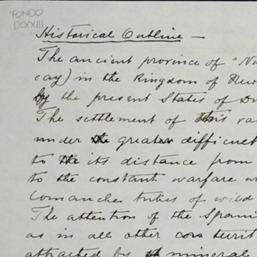 FONDO
Historical Outline —
The ancient province of "Nu
cay) in the Kingdom of New
by the present States of Du
The settlement of this va
under the greater difficul
to the its distance from
to the constant warfare w
Comanches tribes of wild
The attention of the Spani
as in all other territ
attracted by mineral